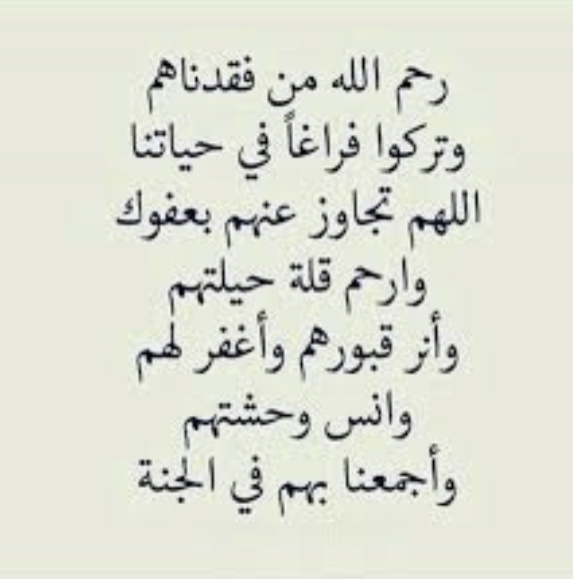 رحم الله من فقدناهم
وتركوا فراغاً في حياتنا
اللهم تجاوز عنهم بعفوك
وارحم قلة حيلتهم
وأنر قبورهم وأغفر لهم
وانس وحشتهم
وأجمعنا بهم في الجنة